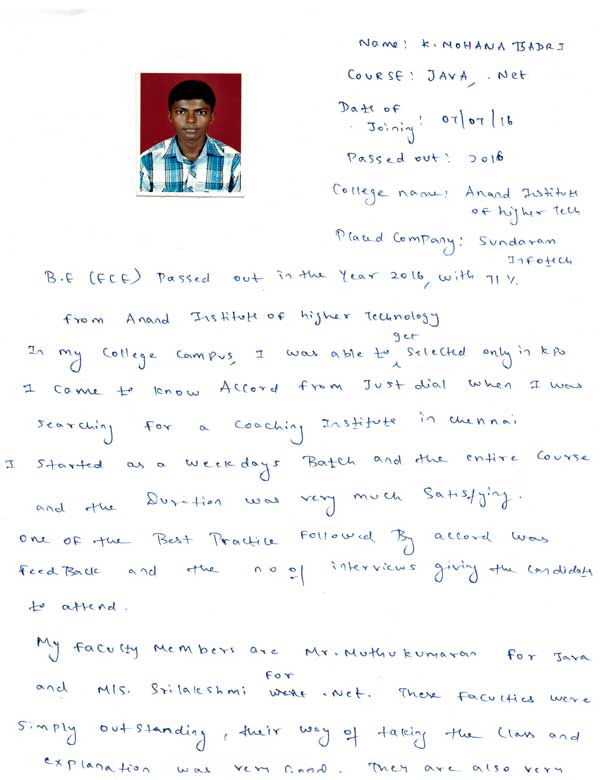 Name: K. MOHANA BADRI
COURSE: JAVA, .Net
Date of
Joining: 07/07/16
Passed out: 2016
College name: Anand Institute
of higher Tech
Placed Company: Sundaram
Infotech
B.E (ECE) Passed out in the Year 2016, with 71%
from Anand Institute of higher Technology
get
In my College Campus, I was able to selected only in kpo
I came to know Accord from Just dial when I was
searching for a Coaching Institute in chennai
I started as a weekdays Batch and the entire Course
and the Duration was very much Satisfying.
One of the Best Practice Followed By accord was
FeedBack and the no of interviews giving the candidate
to attend.
My faculty Members are Mr. Muthukumaran for Java
For
and M/S. Srilakshmi .Net. These faculties were
Simply outstanding, their way of taking the class and
explanation was very Good. They are also very